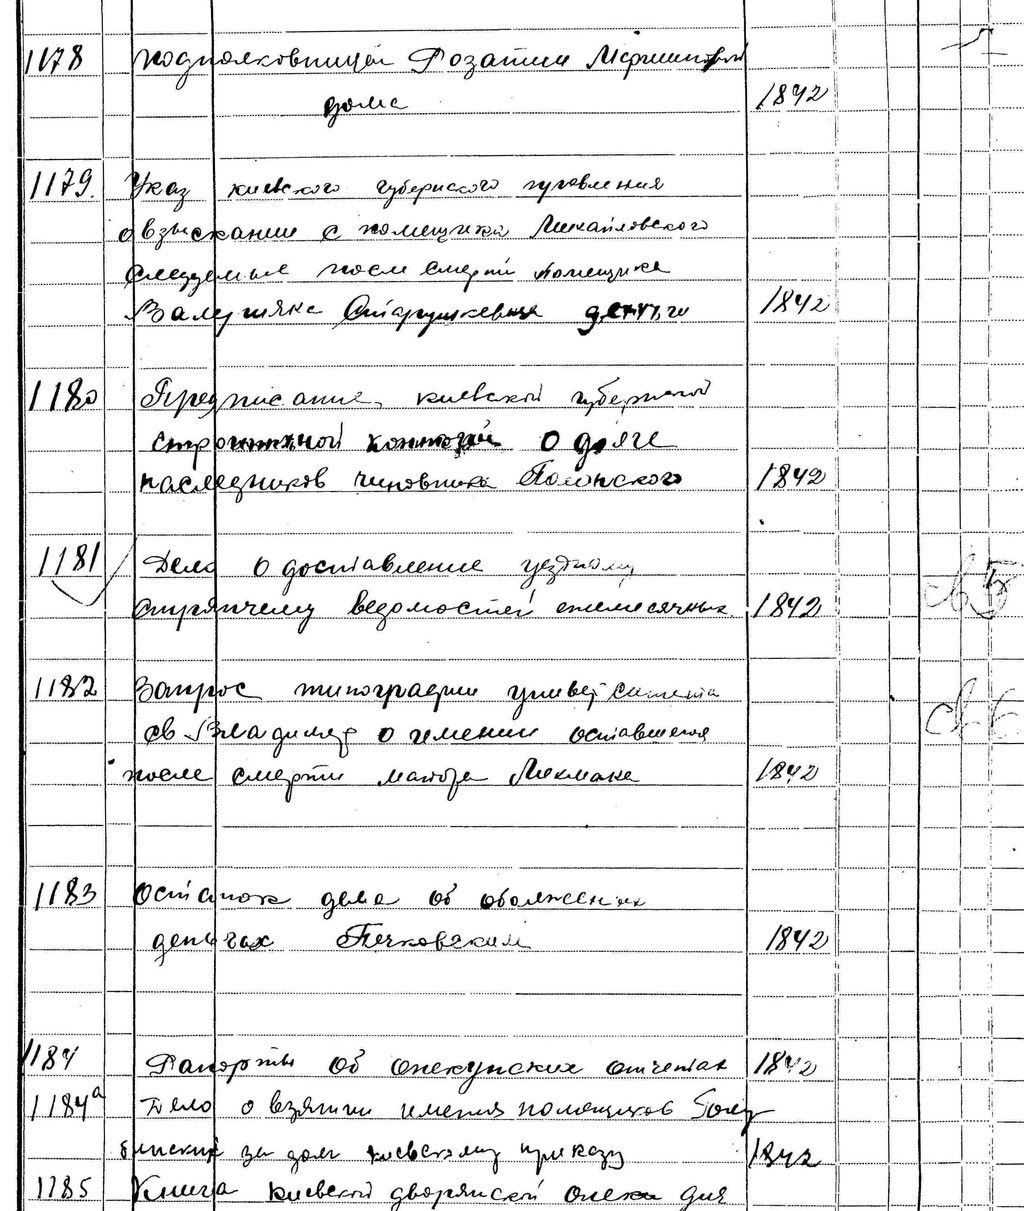 1178 подполковницей Розалии
дома 1842
5
1179. Указ киевского губернского правления
о взыскании с помещика Михайловского
следуемые после смерти помещика
денег 1842
1180 Предписание, киевской губернской
строительной конторы о долге
наследников чиновника Полонского 1842
1181 Дело о доставление уездному
стряпчему ведомостей ежемесячных 1842
св 5
1182 Запрос типографии университета
св Владимир о имении оставшегося
после смерти майора Лекмана 1842
св 6
1183 Остаток дела об
деньгах Печковским 1842
1184 Рапорты об опекунских отчетах 1842
1184а Дело о взятии имения помещиков Голу
бинских за долг киевскому приказу 1842
1185 Книга киевской дворянской опеки для